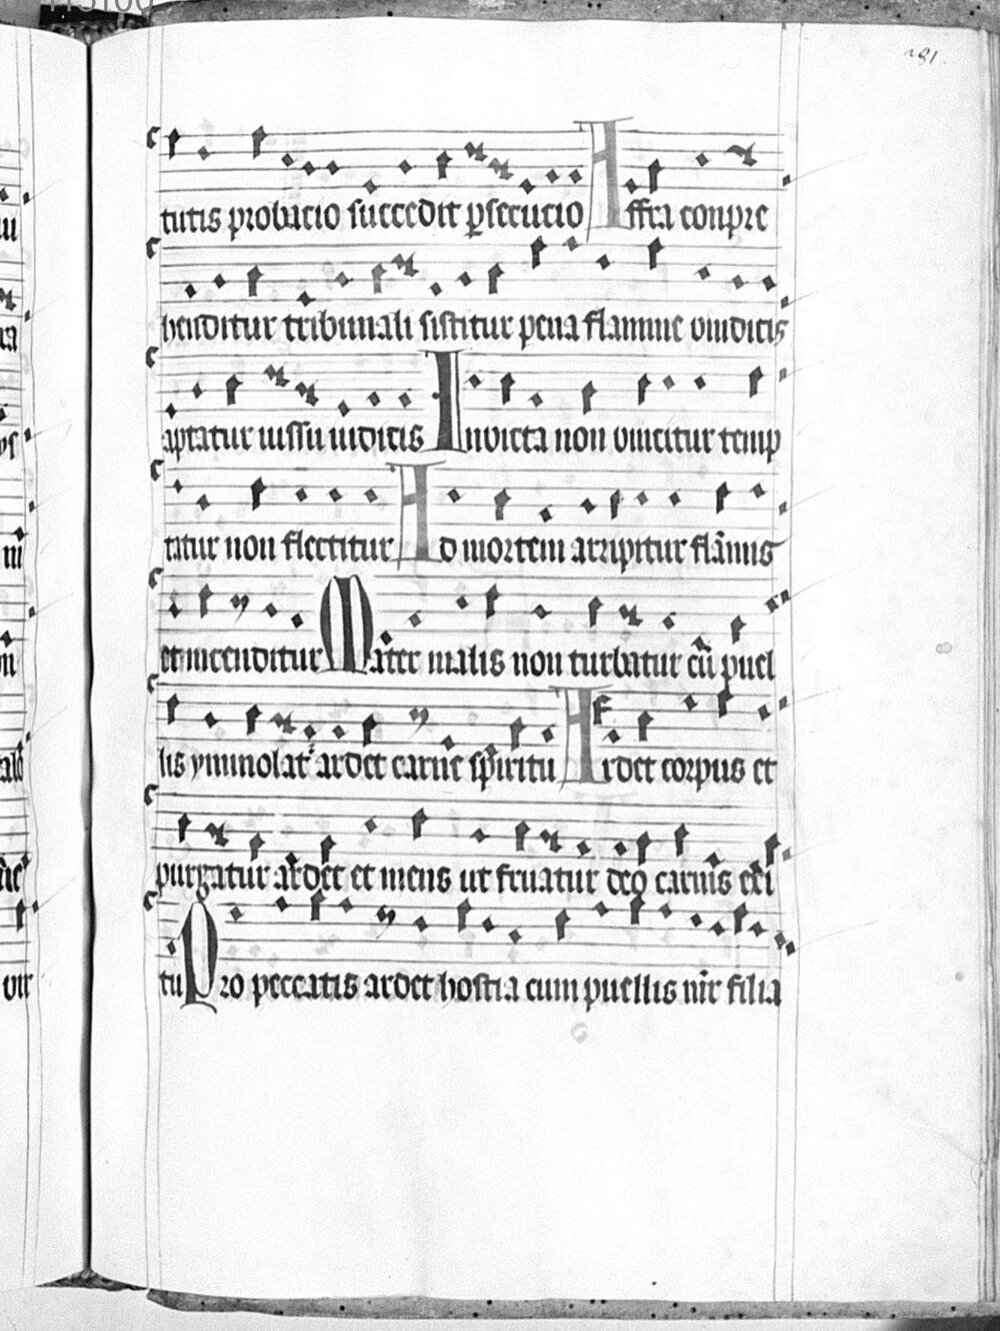 281
tutis probacio succedit ꝑsecucio Affra conpre
henditur tribunali sistitur pena flamme vindicis
aptatur iussu iudicis Invicta non vincitur temp
tatur non flectitur Ad mortem arripitur flāmis
et incenditur Mater malis non turbatur cū puel
lis ymmolat᷑ ardet carne spiritu Ardet corpus et
purgatur ardet et mens ut fruatur deo carnis exi
tu Pro peccatis ardet hostia cum puellis mr̄ filia